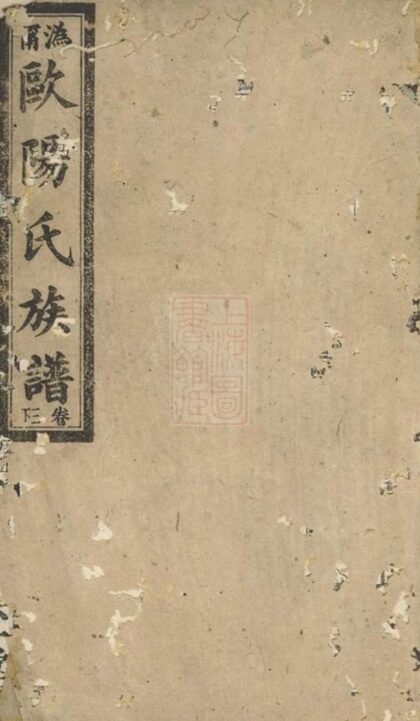 溈甯
歐陽氏族譜
卷三下
上海圖
書館藏